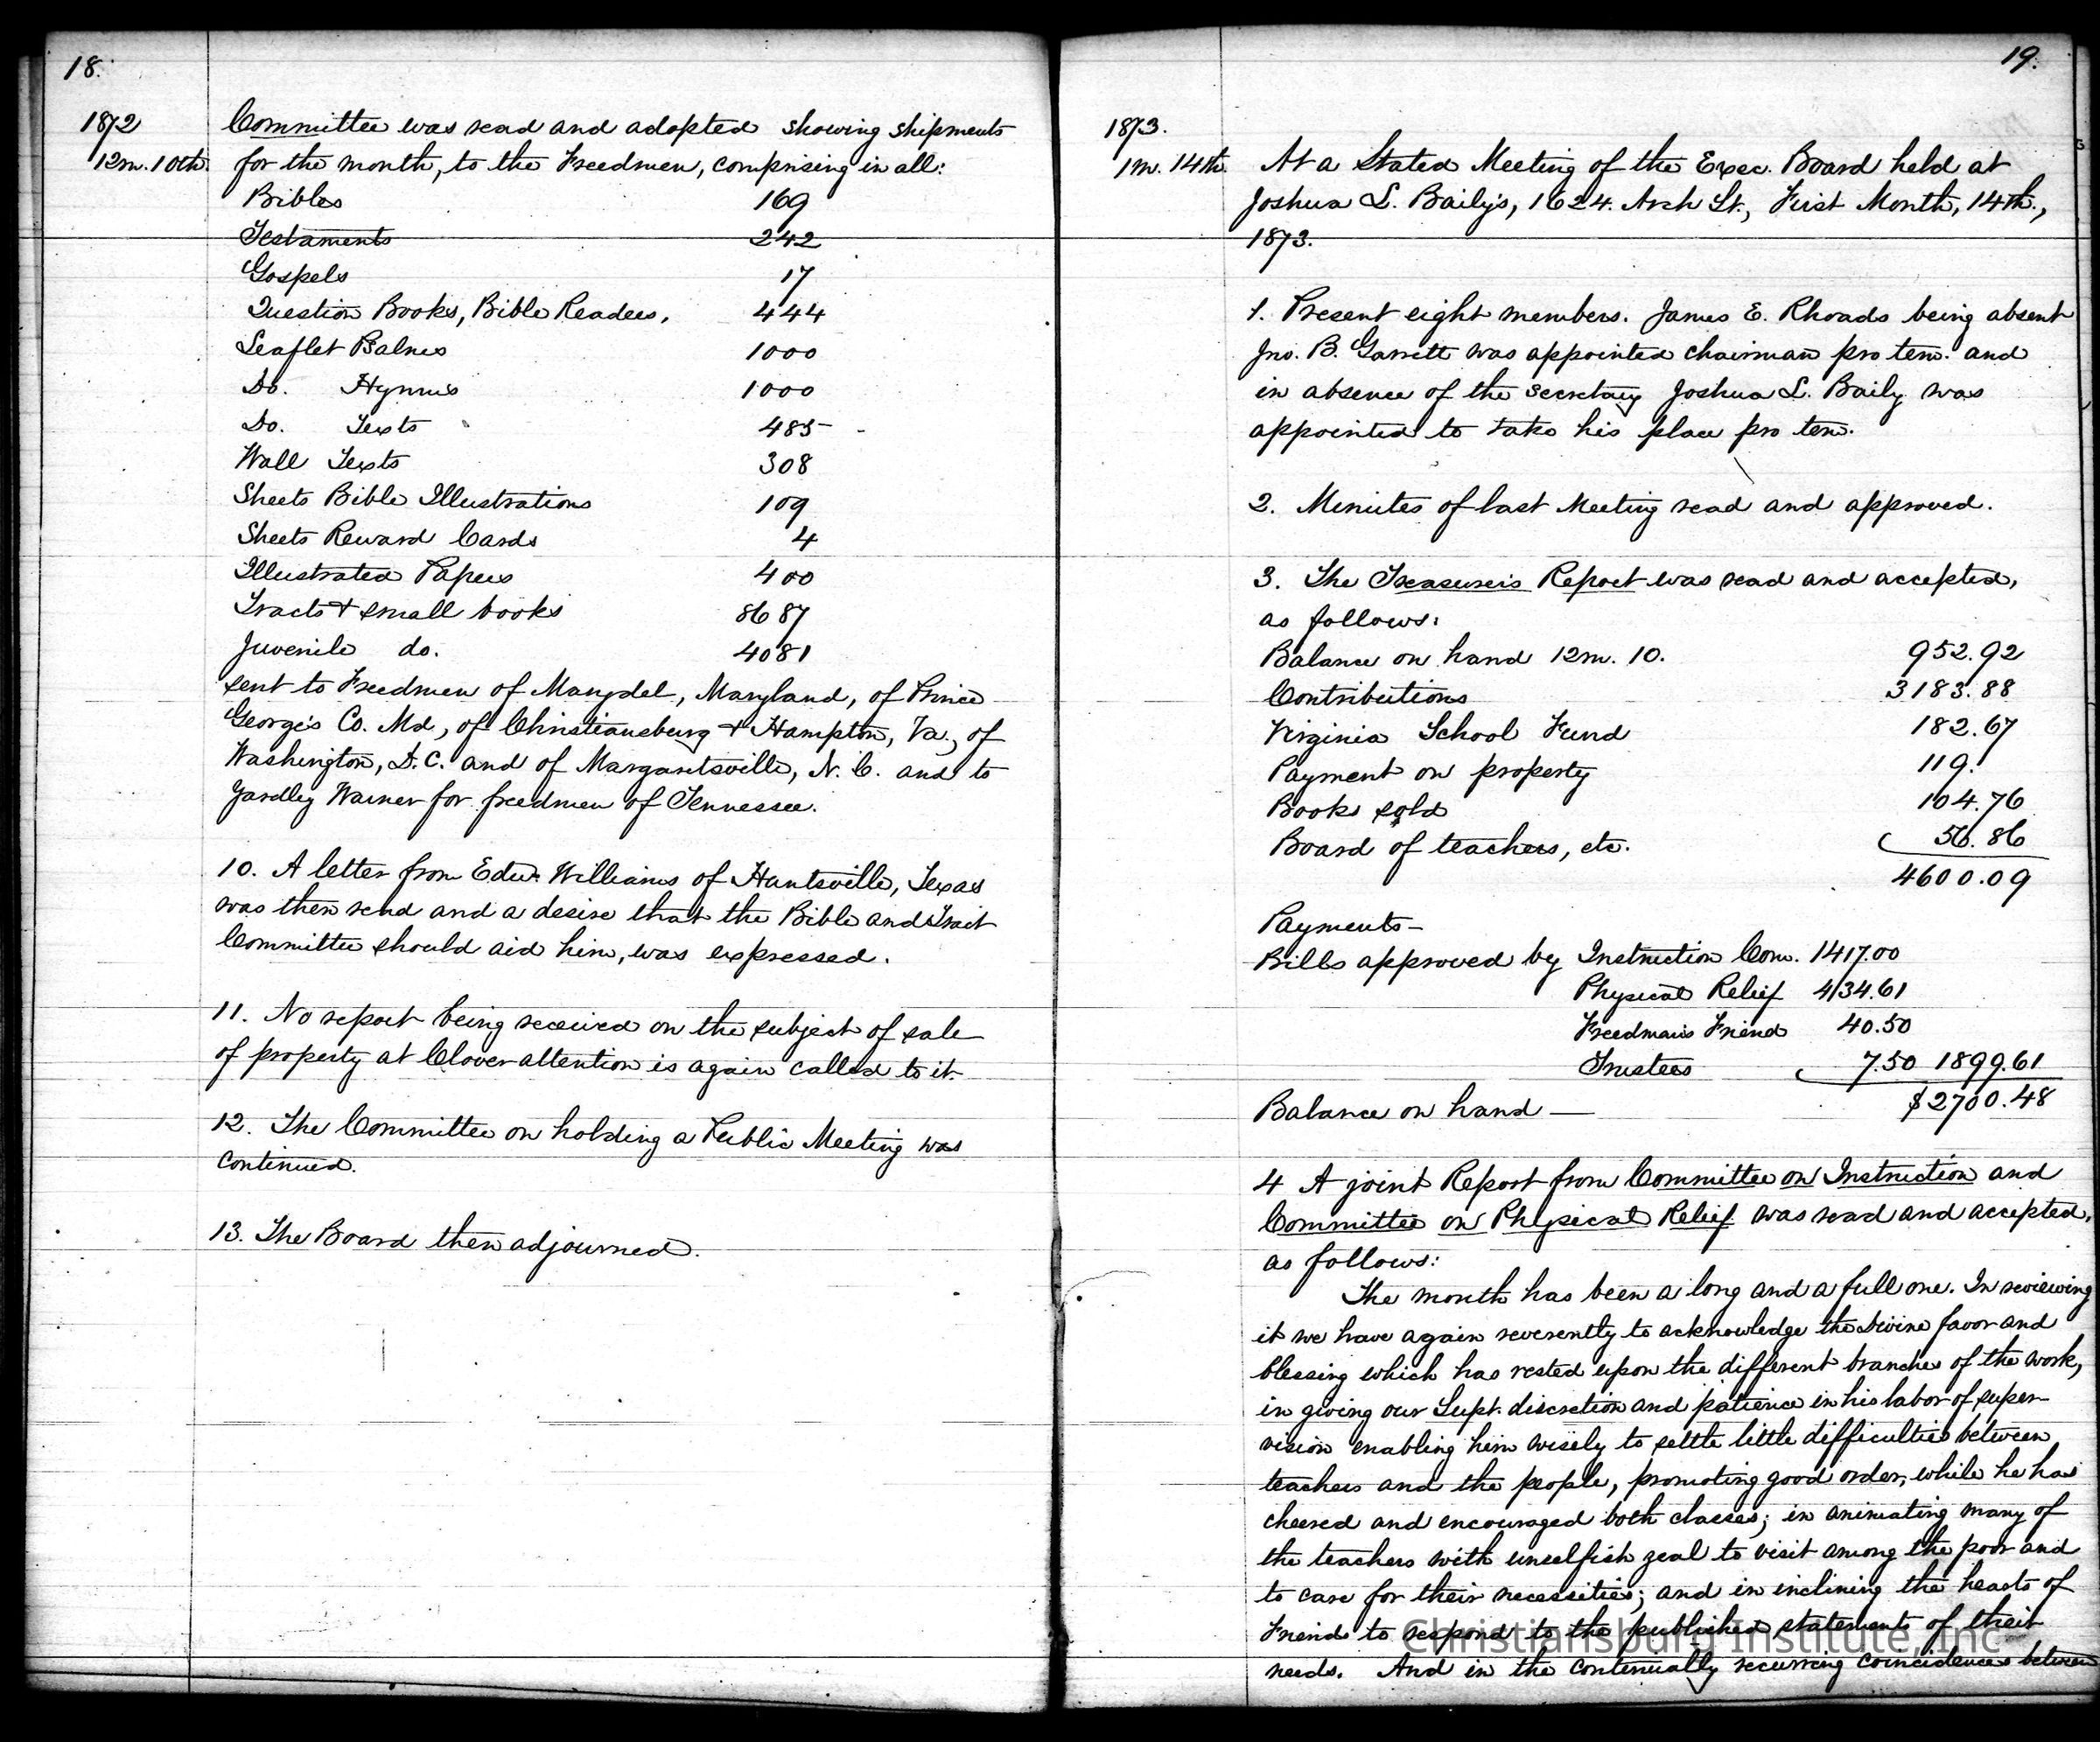 18.
1872
12m. 10th.
Committee was read and adopted showing shipments
for the month, to the Freedmen, comprising in all:
Bibles 169
Testaments 242
Gospels 17
Question Books, Bible Readers, 444
Leaflet Psalms 1000
Do. Hymns 1000
Do. Texts 485
Wall Texts 308
Sheets Bible Illustrations 109
Sheets Reward Cards 4
Illustrated Papers 400
Tracts & small books 8687
Juvenile do. 4081
sent to Freedmen of Marydel, Maryland, of Prince
George's Co. Md, of Christiansburg & Hampton, Va., of
Washington, D.C. and of Margaretsville, N.C. and to
Yardley Warner for freedmen of Tennessee.
10. A letter from Edw. Williams of Huntsville, Texas
was then read and a desire that the Bible and Tract
Committee should aid him, was expressed.
11. No report being received on the subject of sale
of property at Clover attention is again called to it.
12. The Committee on holding a Public Meeting was
continued.
13. The Board then adjourned.
19.
1873.
1m. 14th.
At a Stated Meeting of the Exec. Board held at
Joshua L. Baily's, 1624 Arch St., First Month, 14th.,
1873.
1. Present eight members. James E. Rhoads being absent
Jno. B. Garrett was appointed chairman pro tem. and
in absence of the secretary Joshua L. Baily was
appointed to take his place pro tem.
2. Minutes of last Meeting read and approved.
3. The Treasurer's Report was read and accepted,
as follows:
Balance on hand 12m. 10. 952.92
Contributions 3183.88
Virginia School Fund 182.67
Payment on property 119.
Books sold 104.76
Board of teachers, etc. 56.86
4600.09
Payments—
Bills approved by Instruction Com. 1417.00
Physical Relief 434.61
Freedman's Friend 40.50
Trustees 7.50 1899.61
Balance on hand — $2700.48
4 A joint Report from Committee on Instruction and
Committee on Physical Relief was read and accepted,
as follows:
The month has been a long and a full one. In reviewing
it we have again reverently to acknowledge the Divine favor and
blessing which has rested upon the different branches of the work,
in giving our Supt. discretion and patience in his labor of super-
vision enabling him wisely to settle little difficulties between
teachers and the people, promoting good order, while he has
cheered and encouraged both classes; in animating many of
the teachers with unselfish zeal to visit among the poor and
to care for their necessities; and in inclining the hearts of
Friends to respond to the published statements of their
needs. And in the continually recurring coincidences between
Christiansburg Institute, Inc